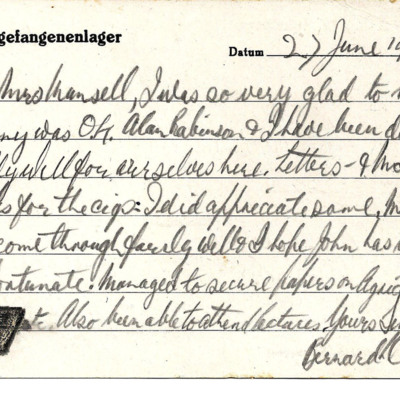 gefangenenlager
Datum 27 June 19
Mrs Mansell, I was so very glad to
ny was O.K. Alan Robinson & I have been d
ly well for ourselves here. Letters - & mo
s for the cigs: I did appreciate some, M
come through fairly well & I hope John has
ortunate. Managed to secure papers on Agric
Also been able to attend lectures. Yours
Bernard